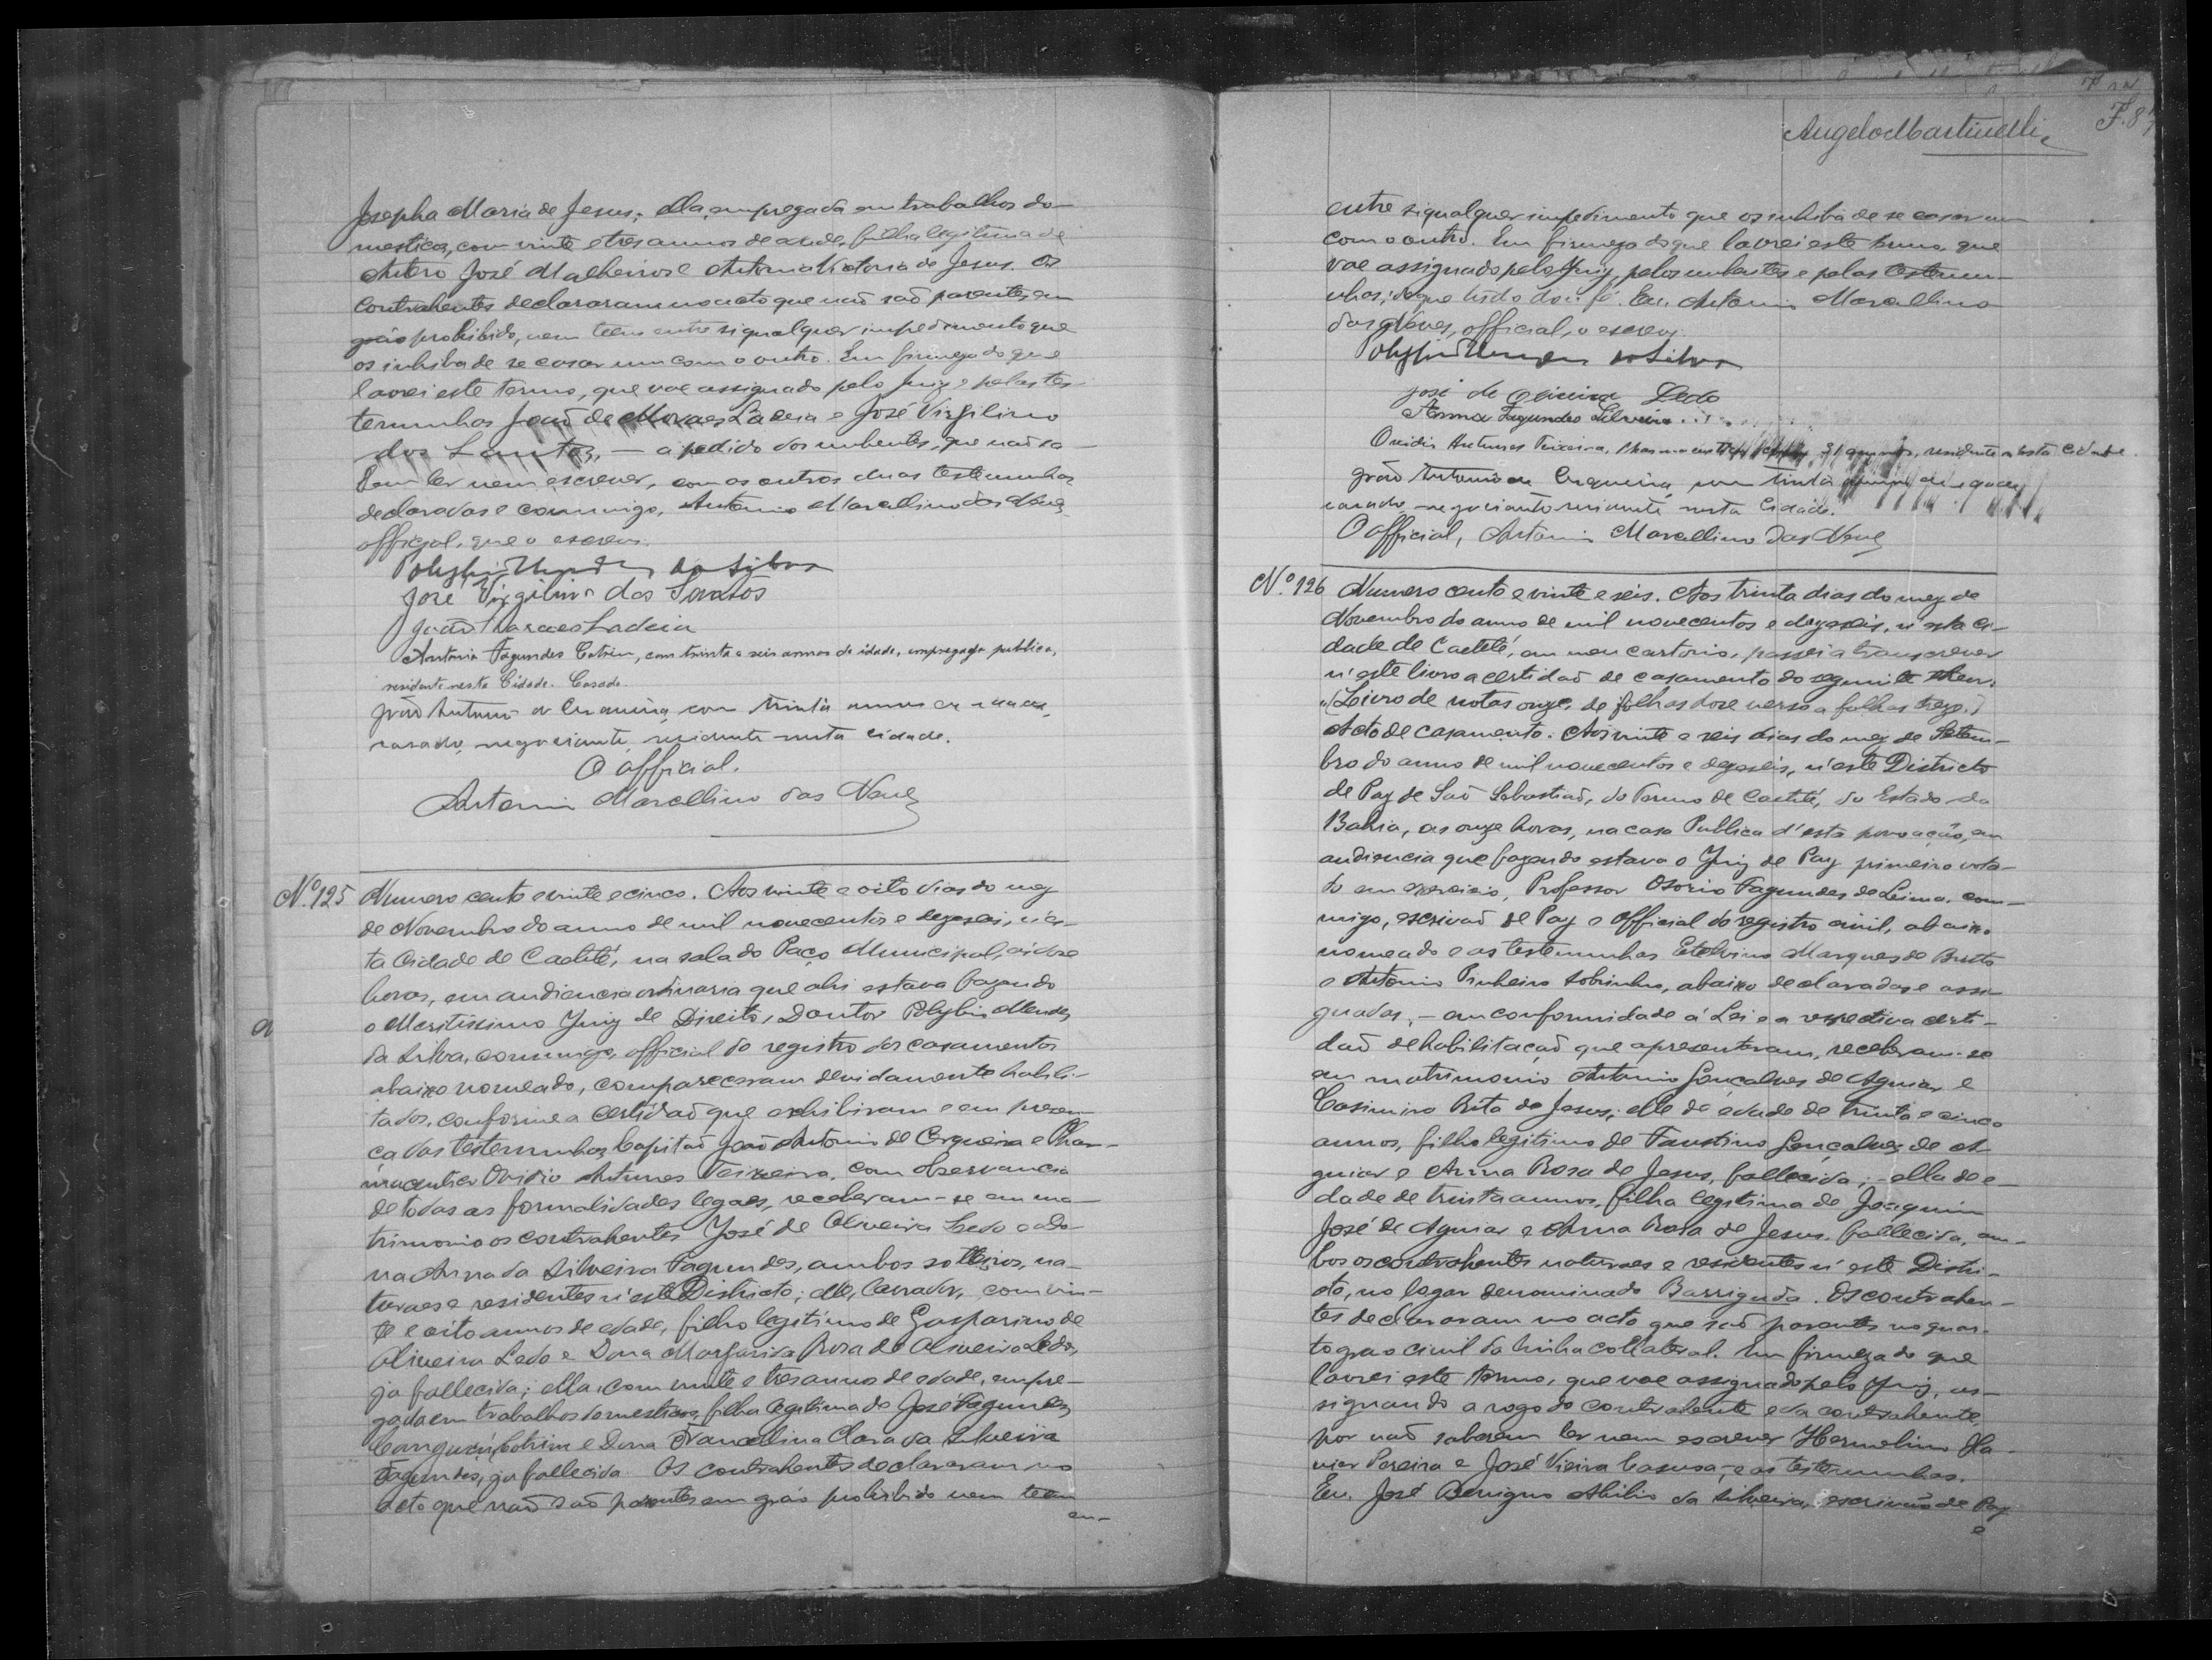 Josepha Maria de Jesus; ella, empregada em trabalhos do-
mesticos, com vinte e tres annos de edade, filha legitima de
Antero José Malheiros e Antonia Victoria de Jesus. Os
contrahentes declararam no acto que naõ saõ parentes em
gráo prohibido, nem teem entre si qualquer impedimento que
os inhiba de se casar um com o outro. Em firmeza do que
lavrei este termo, que vae assignado pelo Juiz e pelas tes-
temunhas Joaõ de Moraes Ladeia e José Virgilino
dos Santos, — a pedido dos nubentes, que naõ sa
bem ler nem escrever, com as outras duas testemunhas
declaradas e commigo, Antonio Marcellino das Neves
official, que o escrevi.
Polybio Mendes da Silva
José Virgilino dos Santos
João Moraes Ladeia
Antonio Fagundes Cotrim, com trinta e seis annos de idade, empregado publico,
residente nesta Cidade. Casado.
João Antonio de Cerqueira, com trinta annos de idade,
casado, negociante, residente nesta cidade.
O official.
Antonio Marcellino das Neves
Nº 125 Numero cento e vinte e cinco. Aos vinte e oito dias do mez
de Novembro do anno de mil novecentos e dezeseis, n'es-
ta Cidade de Caetité, na sala do Paço Municipal, ás doze
horas, em audiencia ordinaria que ahi estava fazendo
o Meritissimo Juiz de Direito, Doutor Polybio Mendes
da Silva, commigo, official do registro dos casamentos
abaixo nomeado, compareceram devidamente habili-
tados, conforme a certidaõ que exhibiram e em presen-
ça das testemunhas Capitaõ Joaõ Antonio de Cerqueira e Phar-
maceutico Ovidio Antunes Teixeira, com observancia
de todas as formalidades legaes, receberam-se em ma-
trimonio os contrahentes José de Oliveira Ledo e do-
na Anna da Silveira Fagundes, ambos solteiros, na-
turaes e residentes n'este Districto; elle, lavrador, com vin-
te e oito annos de edade, filho legitimo de Gasparino de
Oliveira Ledo e Dona Margarida Rosa de Oliveira Ledo,
ja fallecida; ella, com vinte e tres annos de edade, empre-
gada em trabalhos domesticos, filha legitima de José Fagundes
Cotrim e Dona Francellina Clara da Silveira
Fagundes, ja fallecida. Os contrahentes declararam no
acto que naõ saõ parentes em gráo prohibido nem teem
en-
Angelo Martinelli
F. 8
entre si qualquer impedimento que os inhiba de se casar um
com o outro. Em firmeza do que lavrei este termo, que
vae assignado pelo Juiz, pelos nubentes e pelas testemu-
nhas; do que tudo dou fé. Eu, Antonio Marcellino
das Neves, official, o escrevi.
Polybio Mendes da Silva
José de Oliveira Ledo
Anna Fagundes Silveira
Ovidio Antunes Teixeira, Pharmaceutico, 31 annos, residente nesta Cidade.
João Antonio de Cerqueira, com trinta annos de idade,
casado, negociante residente nesta Cidade.
O official, Antonio Marcellino das Neves
Nº 126 Numero cento e vinte e seis. Aos trinta dias do mez de
Novembro do anno de mil novecentos e dezeseis, n'esta Ci-
dade de Caetité, em meu cartorio, passei a transcrever
n'este livro a certidaõ de casamento do seguinte theor:
"(Livro de notas onze, de folhas doze verso a folhas treze.)
Acto de casamento. Aos vinte e seis dias do mez de Setem-
bro do anno de mil novecentos e dezeseis, n'este Districto
de Paz de Saõ Sebastiaõ, do Termo de Caetité, do Estado da
Bahia, as onze horas, na casa Publica d'esta povoação, em
audiencia que fazendo estava o Juiz de Paz primeiro vota-
do em exercicio, Professor Osorio Fagundes de Lima, com-
migo, escrivaõ de Paz e official do registro civil, abaixo
nomeado e as testemunhas Etelvino Marques de Britto
e Antonio Pinheiro Sobrinho, abaixo declaradas e assi-
gnadas, — em conformidade á Lei e a respectiva certi-
daõ de habilitaçaõ que apresentaram, receberam-se
em matrimonio Antonio Gonçalves de Aguiar e
Casimira Rita de Jesus; elle de edade de trinta e cinco
annos, filho legitimo de Faustino Gonçalves de A-
guiar e Anna Rosa de Jesus, fallecida; — ella de e-
dade de trinta annos, filha legitima de Joaquim
José de Aguiar e Anna Rosa de Jesus, fallecida, am-
bos os contrahentes naturaes e residentes n'este Distri-
cto, no logar denominado Barriguda. Os contrahen-
tes declararam no acto que saõ parentes no quar-
to grao civil da linha collateral. Em firmeza do que
lavrei este termo, que vae assignado pelo Juiz, as-
signando a rogo do contrahente e da contrahente
por naõ saberem ler nem escrever Hermelino Xa-
vier Pereira e José Vieira, e as testemunhas.
Eu, José Benigno Abilio da Silveira, escrivaõ de Paz
e